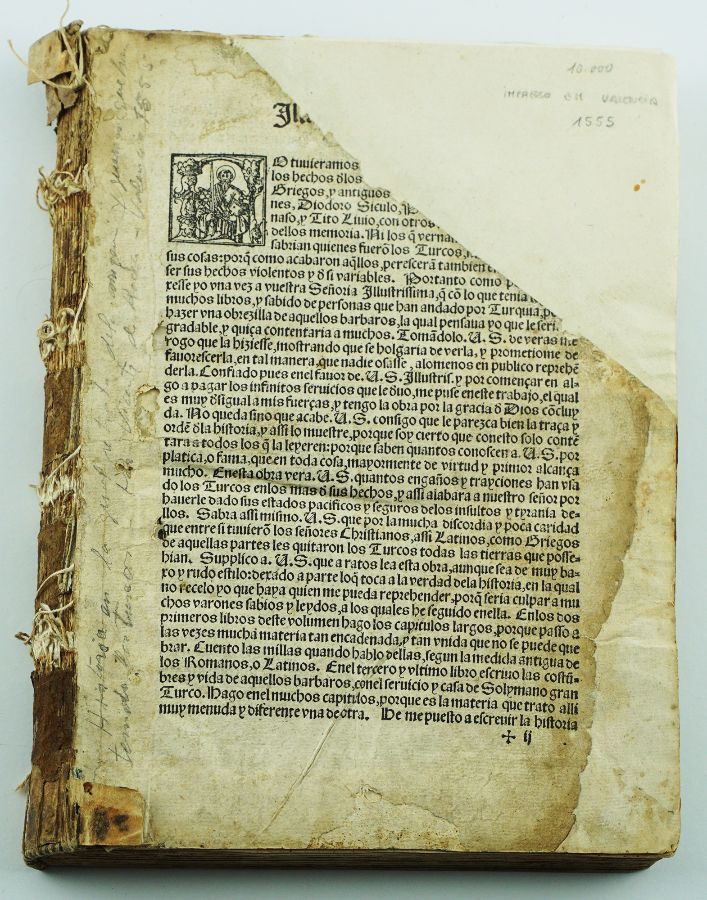 10.000
IMPRESSO EM VALENCIA
1555
Jll
NO tuuieramos
los hechos ðlos
Griegos, y antiguos
nes, Diodoro Siculo,
naso, y Tito Liuio, con otros
dellos memoria. Ni los q̄
sabrian quienes fuerõ los Turcos,
sus cosas: porq̃ como acabaron aq̃llos, peresceran tambien
ser sus hechos violentos y ð si variables. Portanto como
xesse yo vna vez a vuestra Señoria Illustrissima, q̃ cõ lo que tenia
muchos libros, y sabido de personas que han andado por Turquia,
hazer vna obrezilla de aquellos barbaros, la qual pensaua yo que le seri
gradable, y quiça contentaria a muchos. Tomãdolo. U. S. de veras me
rogo que la hiziesse, mostrando que se holgaria de verla, y prometiome de
fauorescerla, en tal manera, que nadie osasse, alomenos en publico reprehẽ
derla. Confiado pues enel fauor de. U. S. Illustris. y por començar en al-
go a pagar los infinitos seruicios que le ðuo, me puse eneste trabajo, el qual
es muy ðsigual a mis fuerças, y tengo la obra por la gracia ð Dios cõcluy
da. No queda sino que acabe. U. S. consigo que le parezca bien la traça y
ordẽ ðla historia, y assi lo muestre, porque soy cierto que conesto solo contẽ
tara a todos los q̃ la leyeren: porque saben quantos conoscen a. U. S. por
platica, o fama, que en toda cosa, mayormente de virtud y primor alcança
mucho. Enesta obra vera. U. S. quantos engaños y trayciones han vsa
do los Turcos enlos mas ð sus hechos, y assi alabara a nuestro señor por
hauerle dado sus estados pacificos y seguros delos insultos y tyrania de-
llos. Sabra assi mismo. U. S. que por la mucha discordia y poca caridad
que entre si tuuierõ los señores Christianos, assi Latinos, como Griegos
de aquellas partes les quitaron los Turcos todas las tierras que posse-
hian. Supplico a. U. S. que a ratos lea esta obra, aunque sea de muy ba-
xo y rudo estilo: dexado a parte loq̃ toca a la verdad dela historia, en la qual
no recelo yo que haya quien me pueda reprehender, porq̃ seria culpar a mu
chos varones sabios y leydos, a los quales he seguido enella. Enlos dos
primeros libros deste volumen hago los capitulos largos, porque passo a
las vezes mucha materia tan encadenada, y tan vnida que no se puede que
brar. Cuento las millas quando hablo dellas, segun la medida antigua de
los Romanos, o Latinos. Enel tercero y vltimo libro escriuo las costũ-
bres y vida de aquellos barbaros, conel seruicio y casa de Solymano gran
Turco. Hago enel muchos capitulos, porque es la materia que trato alli
muy menuda y diferente vna de otra. He me puesto a escreuir la historia
✠ ij
Historia en la
Valencia 1555